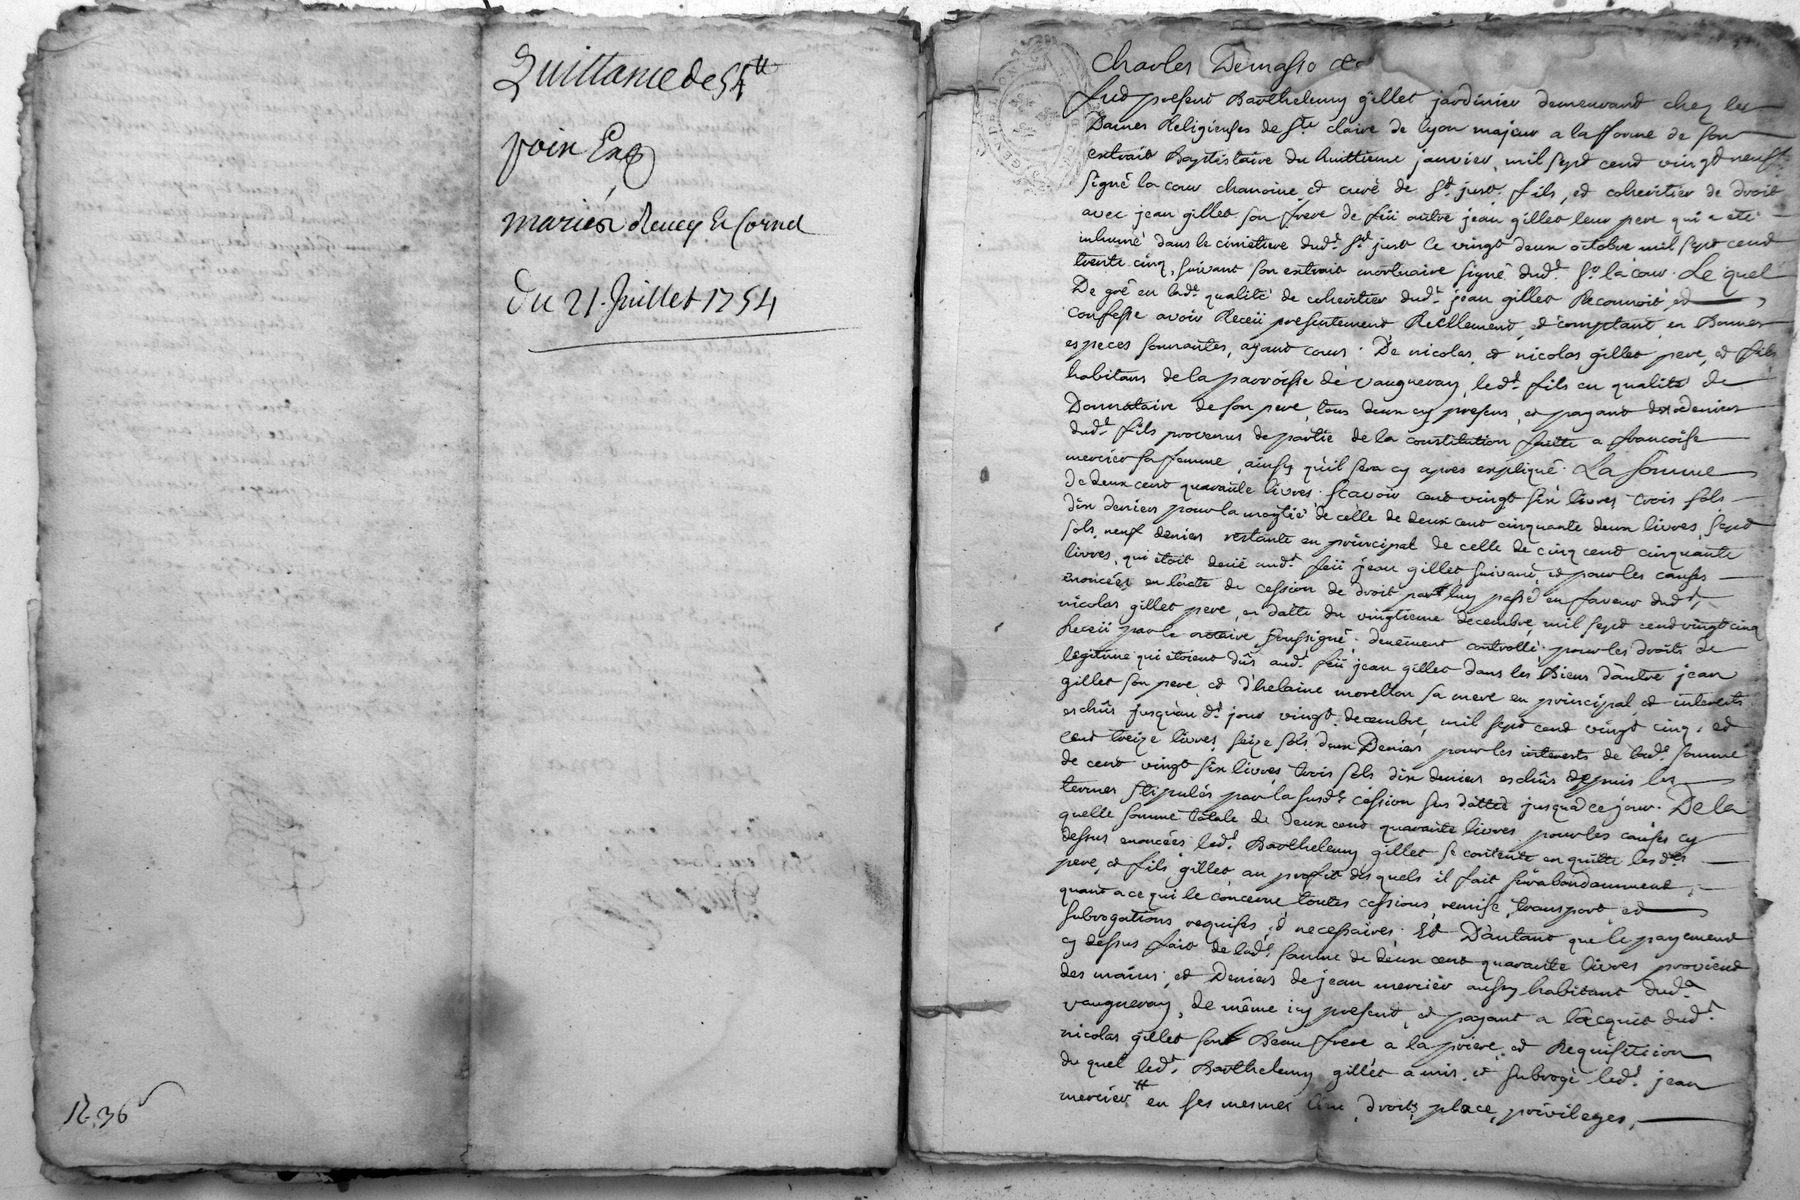 Quittance de 54ᵗᵗ
pour Exp
mariés Reucy Et Cornet
Du 21. Juillet 1754
N. 36
Charles Demasso &c
Fud present Barthelemy gillet jardinier demeurand chez les
Dames Religieuses de Ste claire de lyon majeur a la fforme de son
extrait Baptistaire du huittieme janvier mil sept cend vingt neuf
signé la cour chanoine et curé de St just, fils, et coheritier de droit
avec jean gillet son frere de feü autre jean gillet leur pere qui a eté
inhumé dans le cimetiere dudt St just le vingt deux octobre mil sept cend
trente cinq, suivant son extrait mortuaire signé dudt Sr la cour. Le quel
De gré en ladte qualité de coheritier dudt jean gillet Reconnoit et
confesse avoir Receü presentement Reellement, et comptant en Bonnes
especes sonnantes, ayant cours. De nicolas, et nicolas gillet pere, et fils
habitans de la parroisse de vaugneray, ledt fils en qualité de
Donnataire de son pere, tous deux cy presens, et payant des deniers
dudt fils provenus de partie de la constitution faitte a francoise
mercier sa femme, ainsy qu'il sera cy apres expliqué. La somme
de deux cent quarante livres. Scavoir cent vingt six livres trois sols
dix deniers pour la moytié de celle de deux cent cinquante deux livres, sept
sols, neuf deniers restante en principal de celle de cinq cend cinquante
livres, qui étoit deüe audt feü jean gillet suivant, et pour les causes
énoncées en l'acte de cession de droit par luy passé en faveur dudt
nicolas gillet pere, en datte du vingtieme decembre mil sept cend vingt cinq
Receü par le notaire soussigné. deuëment controllé. pour les droits de
legitime qui étoient dûs audt feü jean gillet dans les Biens d'autre jean
gillet son pere, et d'helaine morellon sa mere en principal, et interests
eschûs jusqu'au dt jour vingt decembre mil sept cend vingt cinq. et
cent treize livres, seize sols, deux Deniers, pour les interests de ladte somme
de cent vingt six livres trois sols dix deniers eschûs depuis les
termes stipulés par la susdte cession sus dattée jusqu'a ce jour. De la
quelle somme totale de deux cent quarante livres pour les causes cy
dessus enoncées ledt Barthelemy gillet se contente en quitte lesdts
pere, et fils gillet au profit des quels il fait surabondamment,
quant a ce qui le concerne toutes cessions, remise, transport, et
subrogations requises, et necessaires. Et D'autant que le payement
cy dessus fait de ladte somme de deux cent quarante livres provient
des mains, et Deniers de jean mercier aussy habitant dudt
vaugneray, de même icy present, et payant a l'acquit dudt
nicolas gillet son Beau frere a la priere, et Requisition
du quel ledt Barthelemy gillet a mis, et subrogé ledt jean
mercier en ses mesmes lieu, droits, place, privileges,